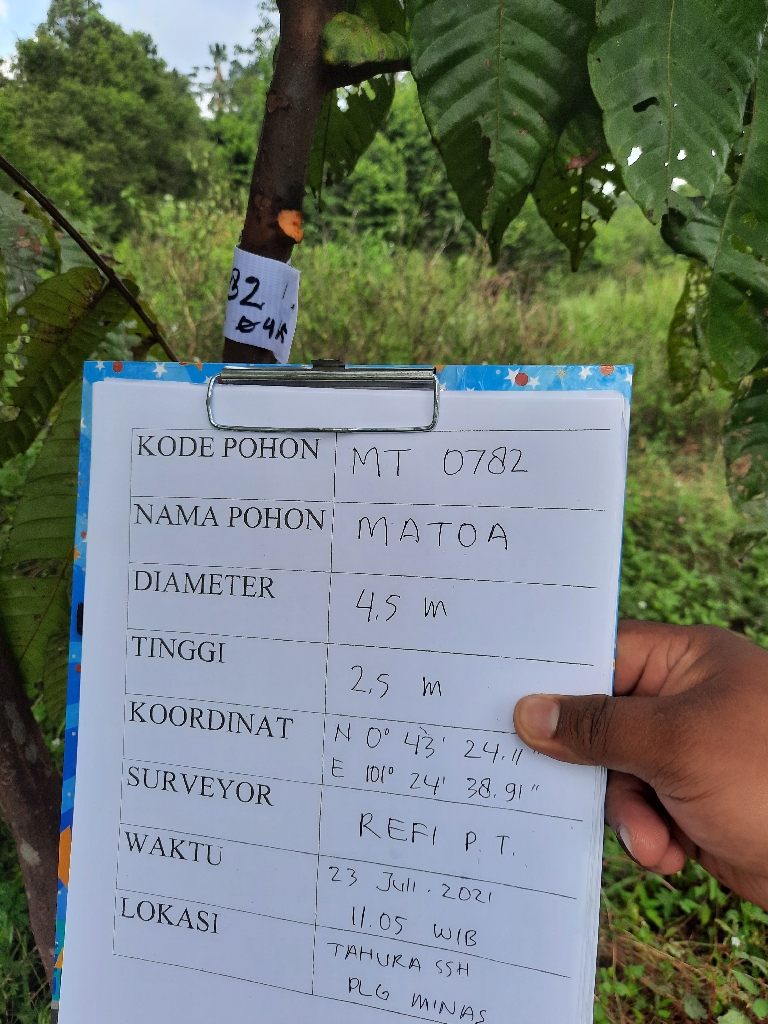 82
KODE POHON MT 0782
NAMA POHON MATOA
DIAMETER 4.5 m
TINGGI 2.5 m
KOORDINAT N 0° 43' 24.11"
E 101° 24' 38.91"
SURVEYOR REFI P.T.
WAKTU 23 Juli. 2021
11.05 WIB
LOKASI TAHURA SSH
PLG MINAS